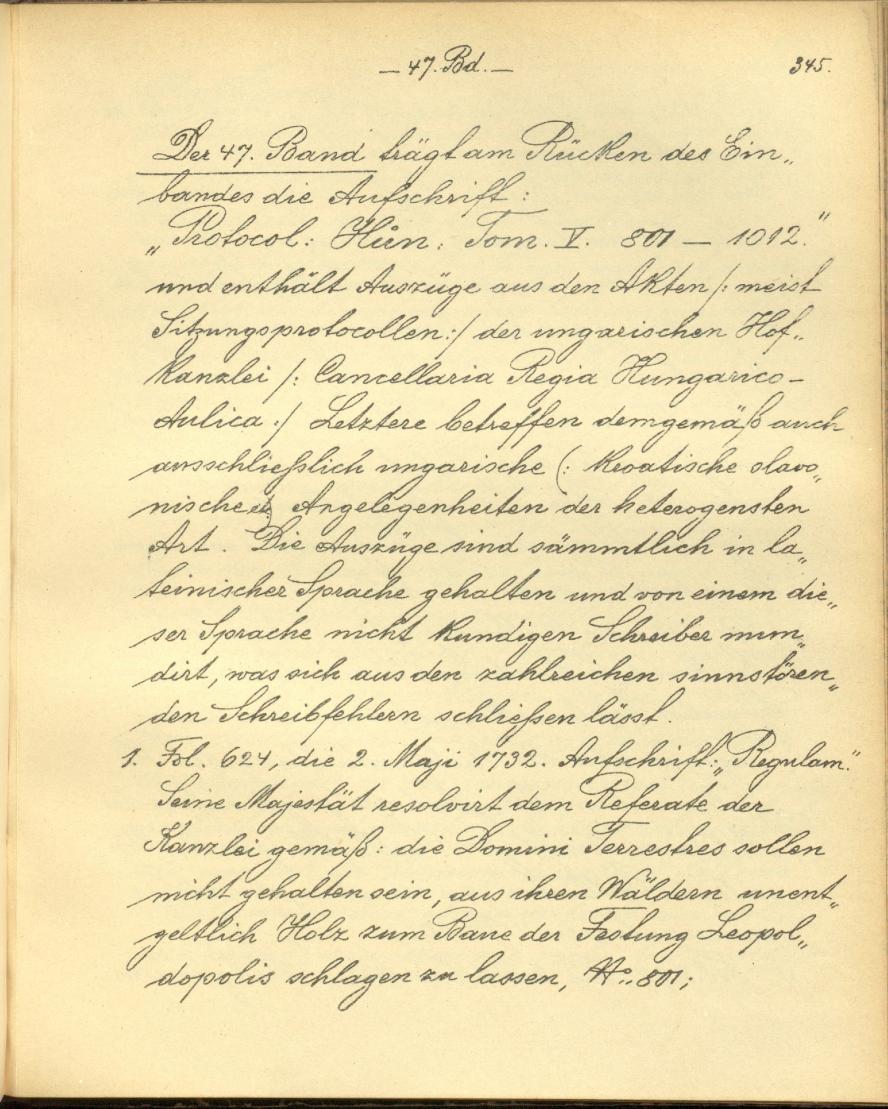 — 47. Bd. — 345.
Der 47. Band trägt am Rücken des Ein„
bandes die Aufschrift :
„Protocol: Hŭn: Tom. V. 801 — 1012."
und enthält Auszüge aus den Akten /: meist
Sitzungsprotocollen :/ der ungarischen Hof„
kanzlei /: Cancellaria Regia Hungarico-
Aulica :/ Letztere betreffen demgemäß auch
ausschließlich ungarische (: kroatische slavo„
nische Angelegenheiten der heterogensten
Art. Die Auszüge sind sämmtlich in la„
teinischer Sprache gehalten und von einem die„
ser Sprache nicht kundigen Schreiber mun„
dirt, was sich aus den zahlreichen sinnstören„
den Schreibfehlern schließen lässt.
1. Fol. 624, die 2. Maji 1732. Aufschrift: „Regulam."
Seine Majestät resolvirt dem Referate der
Kanzlei gemäß: die Domini Terrestres sollen
nicht gehalten sein, aus ihren Wäldern unent„
geltlich Holz zum Baue der Festung Leopol„
dopolis schlagen zu lassen, No. 801;